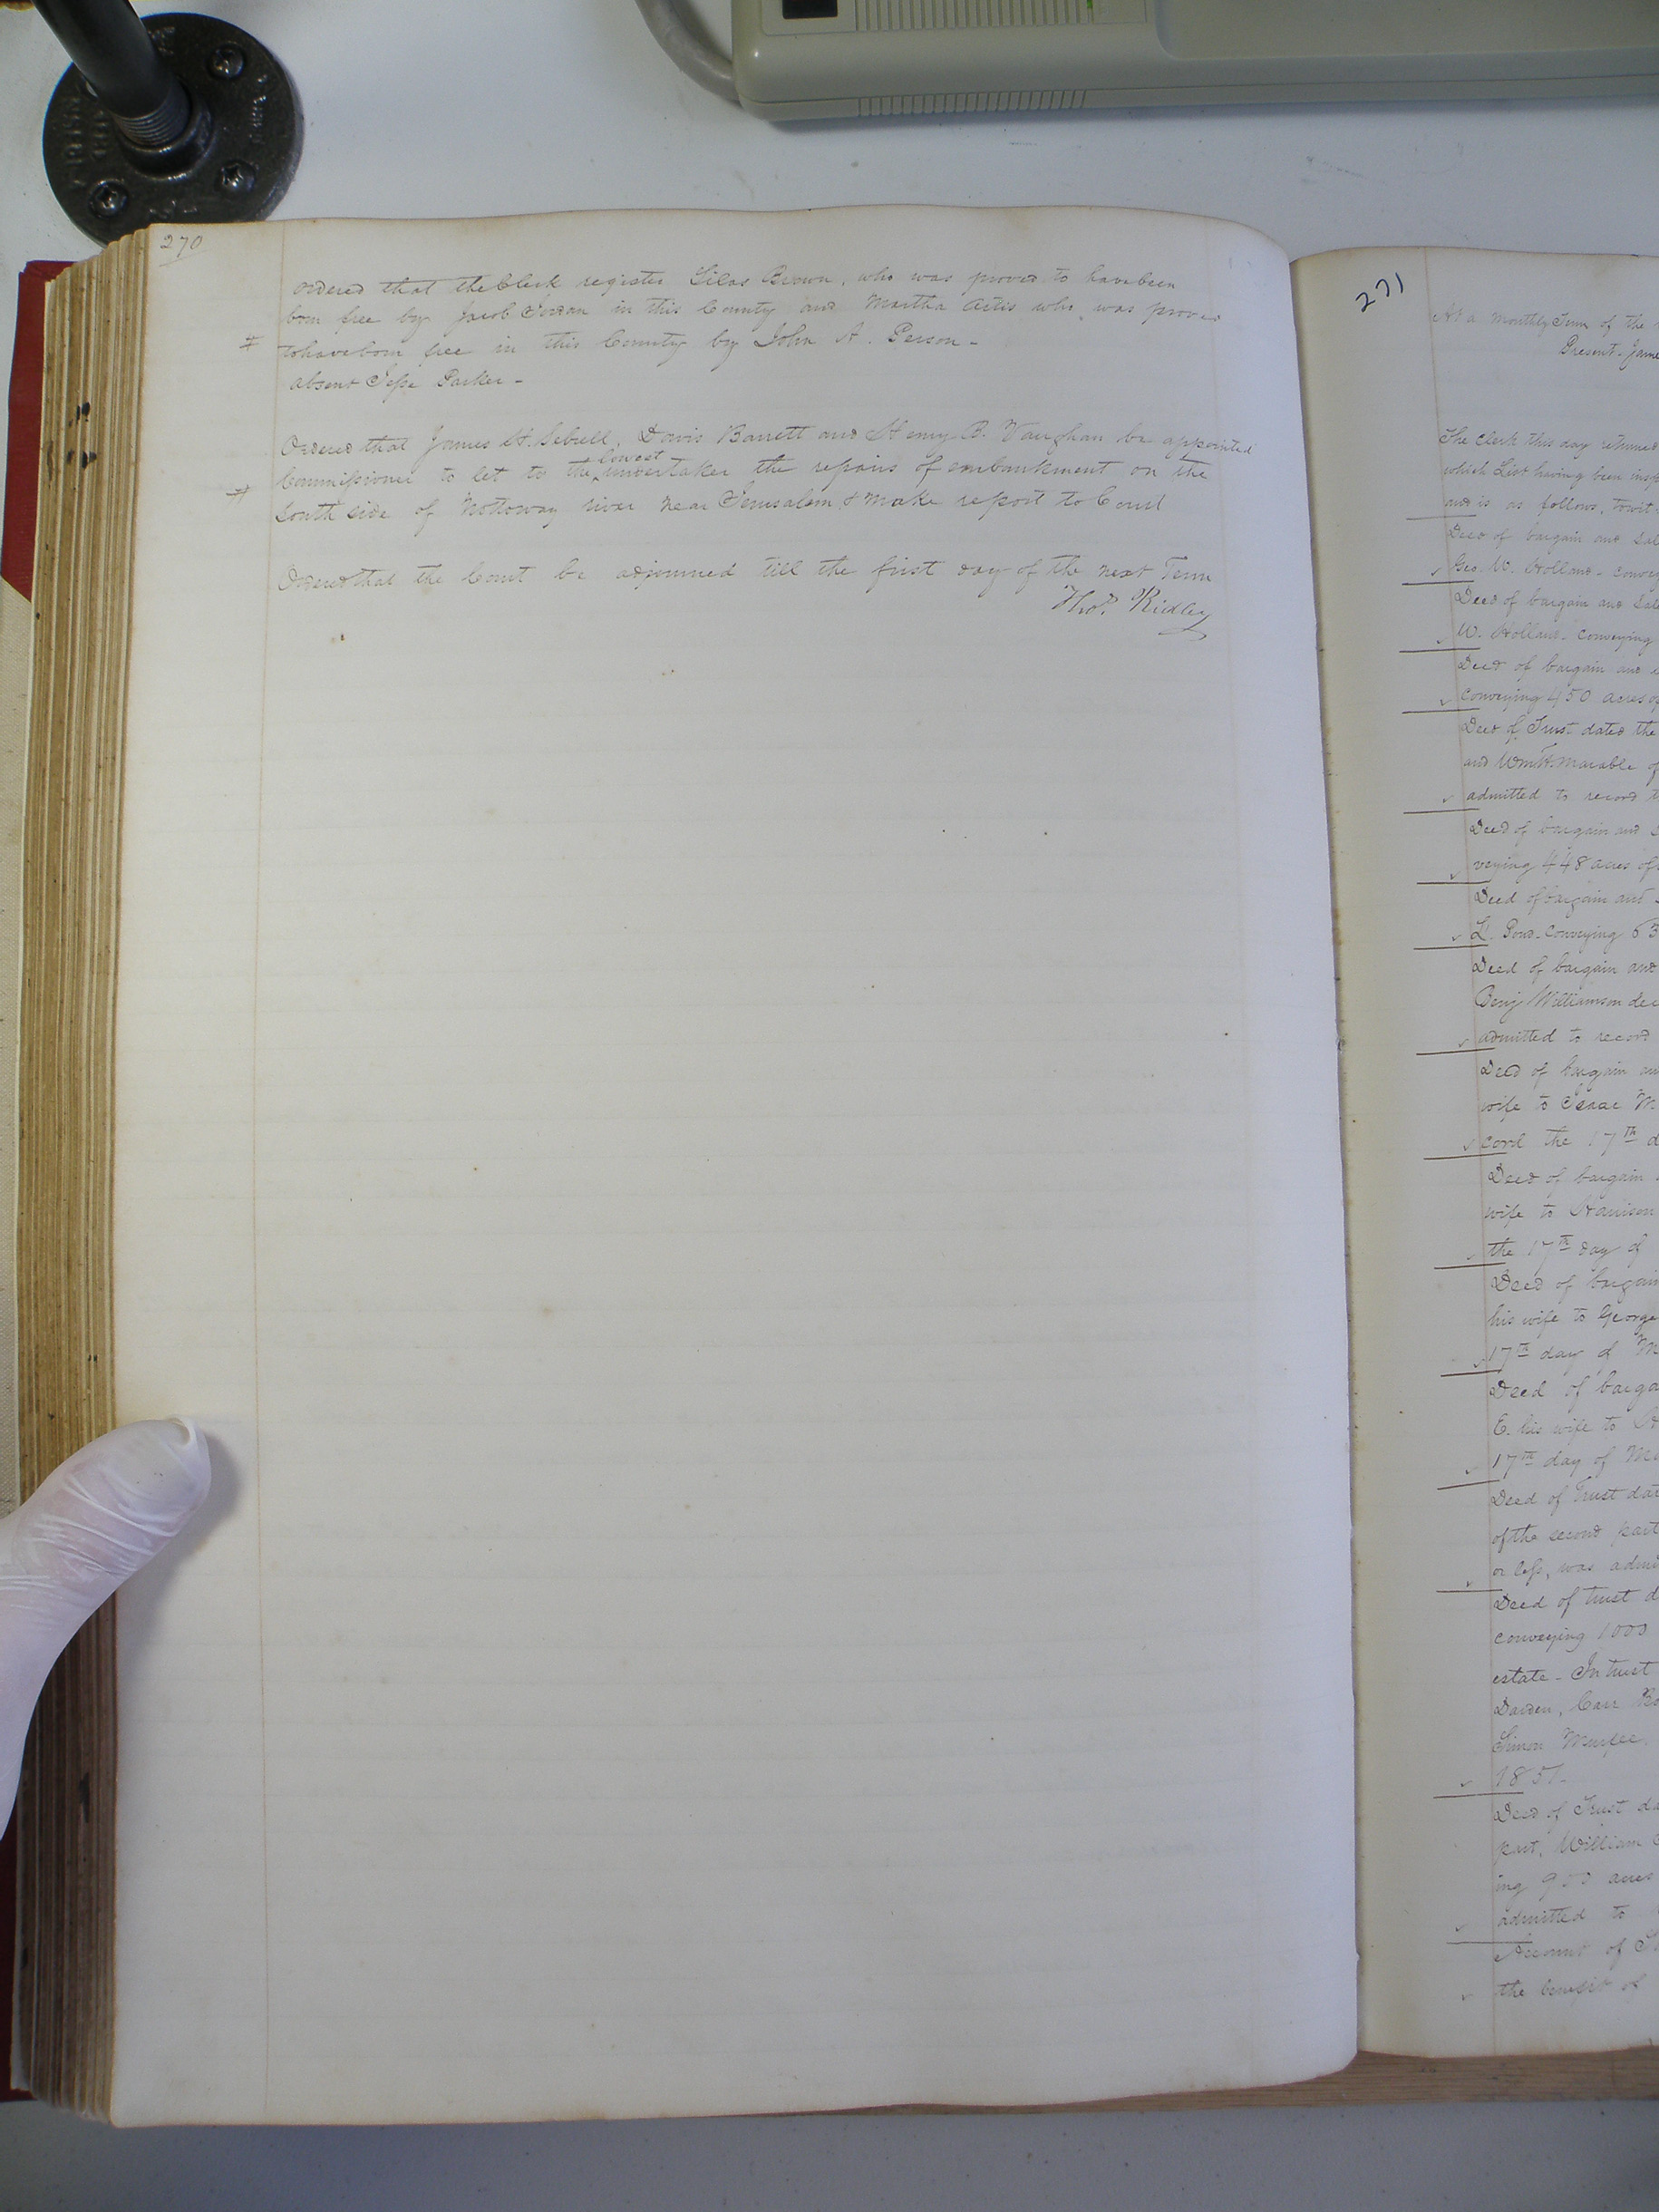 270
ordered that the Clerk register Silas Brown, who was proved to have been
born free by Jacob in this County and Martha who was proved
to have born free in this County by John A. Person -
absent Jesse Parker -
Ordered that James H. Sebrell, Davis Barrett and Henry B. Vaughan be appointed
Commissioner to let to the lowest undertaker the repairs of embankment on the
South side of Nottoway river near Jerusalem & make report to Court
Ordered that the Court be adjourned till the first day of the next Term
Thos. Ridley
271
At a Monthly Term of the
Present - James
The Clerk this day returned
which List having been
and is as follows, towit:
Deed of bargain and
Geo. W. Holland -
Deed of bargain and
W. Holland - conveying
Deed of bargain and
conveying 450 acres
Deed of Trust dated the
and Wm H. Marable of
admitted to record
Deed of bargain and
veying 448 acres of
Deed of bargain and
L. conveying 63
Deed of bargain and
Benj Williamson
admitted to record
Deed of bargain
wife to Isaac
cord the 17th
Deed of bargain
wife to Harrison
the 17th day of
Deed of bargain
his wife to George
17th day of
Deed of
E. his wife to
17th day of
Deed of Trust
of the second part
or less, was
Deed of trust
conveying 1000
estate - In trust
Darden, Carr
Simon Murfee,
1851 -
Deed of Trust
part, William
ing 900 acres
admitted to
Account of
the benefit of